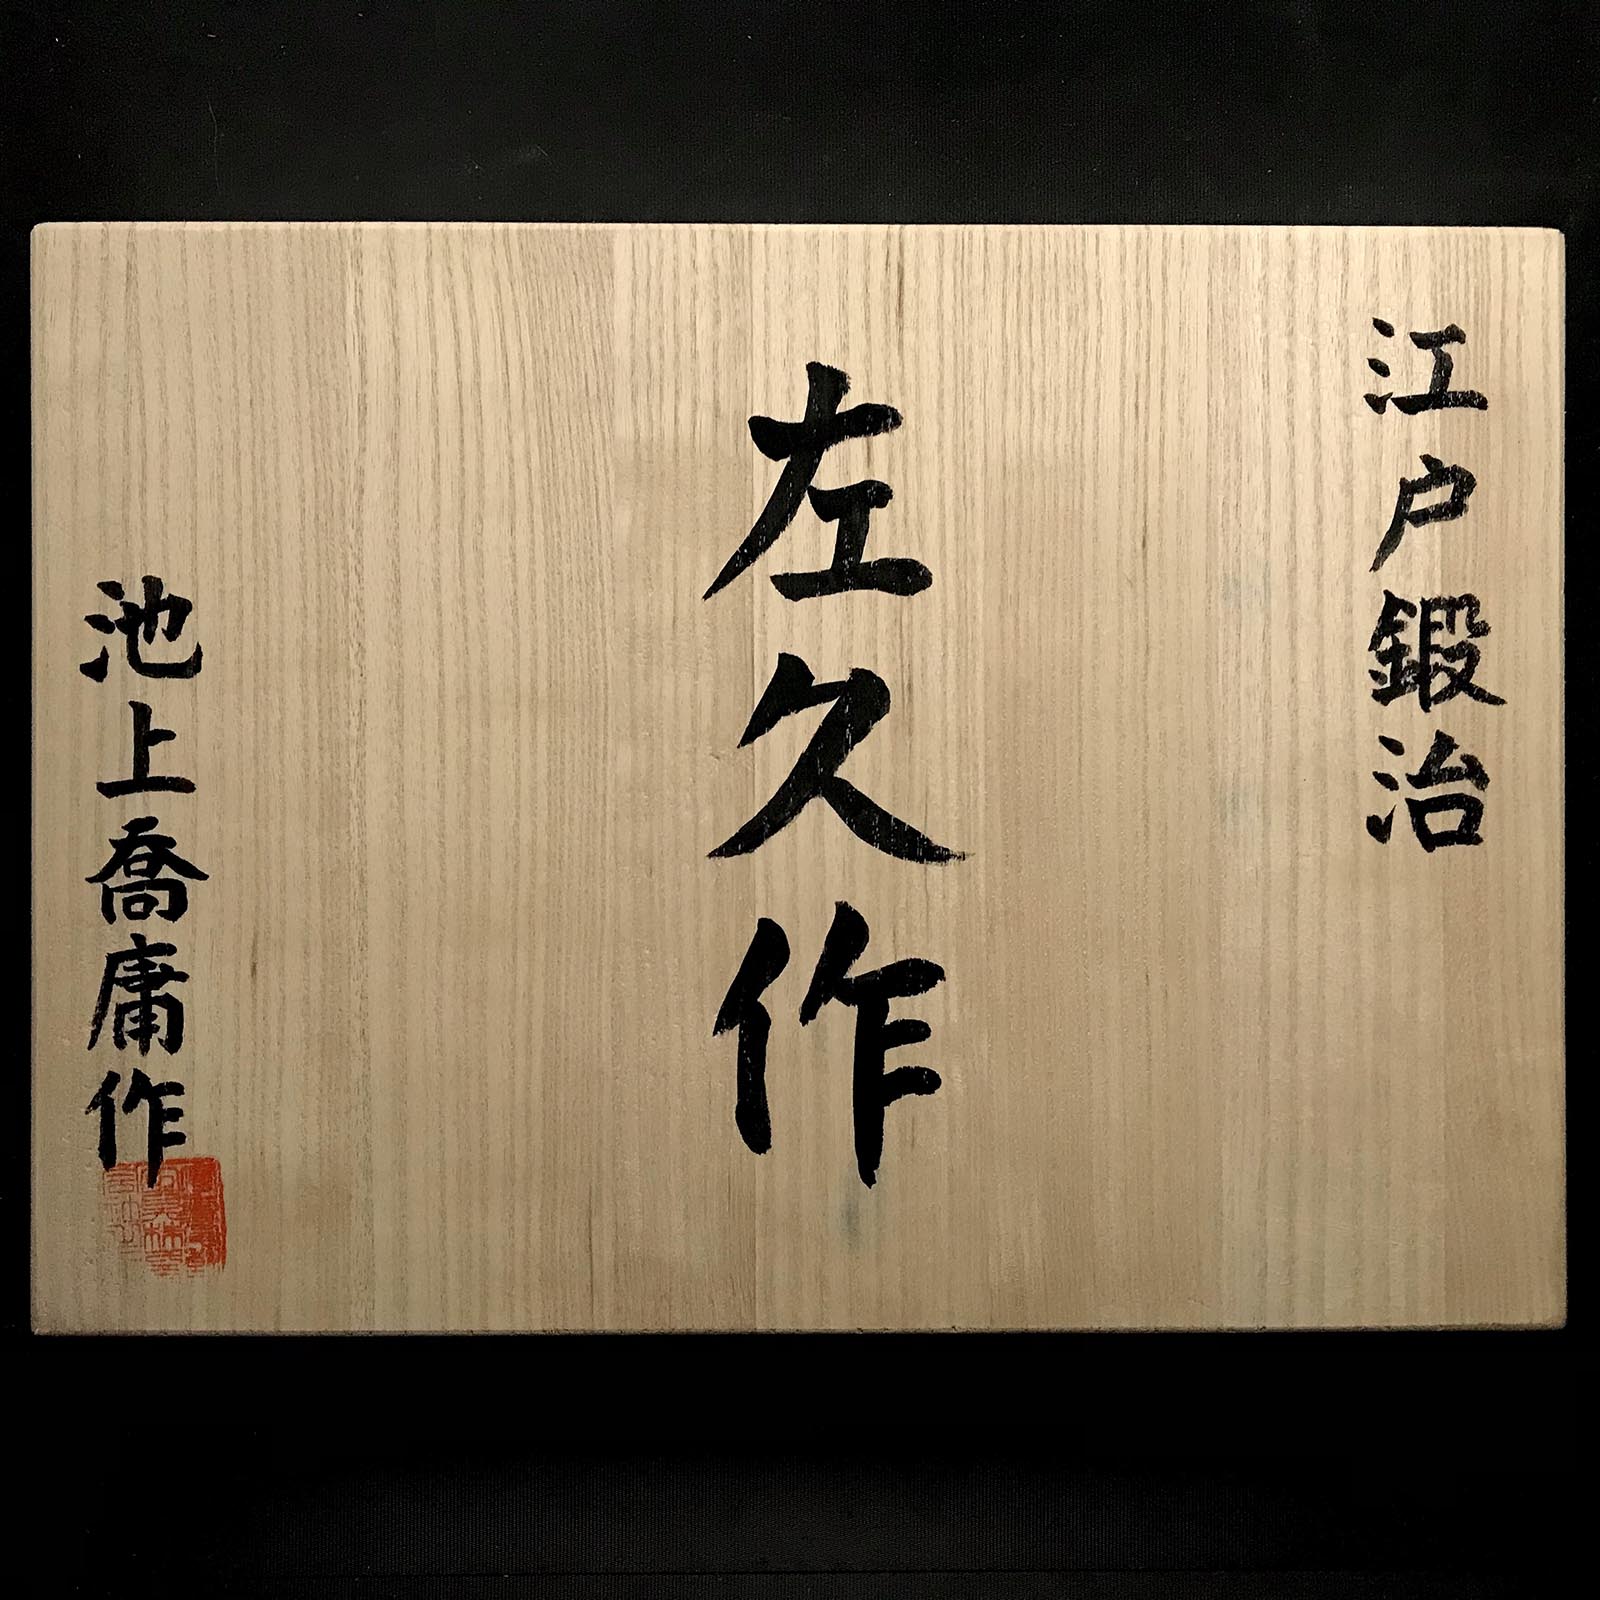 江戸鍛治
左久作
池上喬庸作